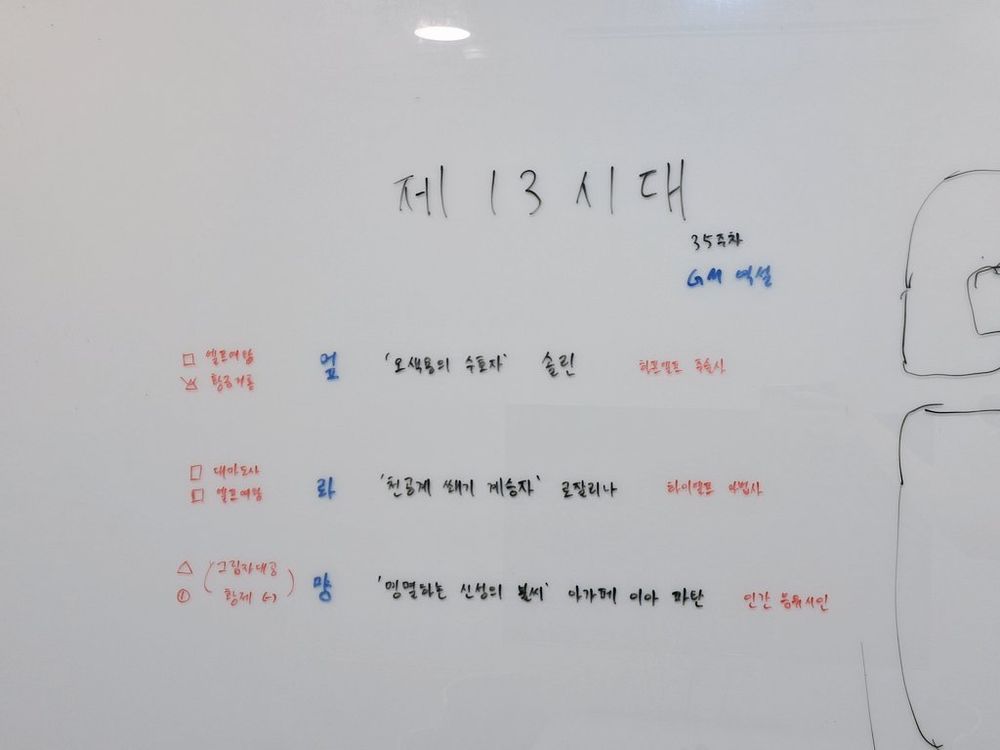 제 13시대
35주차
GM 역설
엘프여왕
황금거룡
엎 '오색용의 수호자' 솔린 하프엘프 주술사
대마도사
엘프여왕
라 '천공계 쐐기 계승자' 로잘리나 하이엘프 마법사
(그림자대공
황제 (-))
먕 '명멸하는 신성의 불씨' 아가페 이아 파탄 인간 음유시인